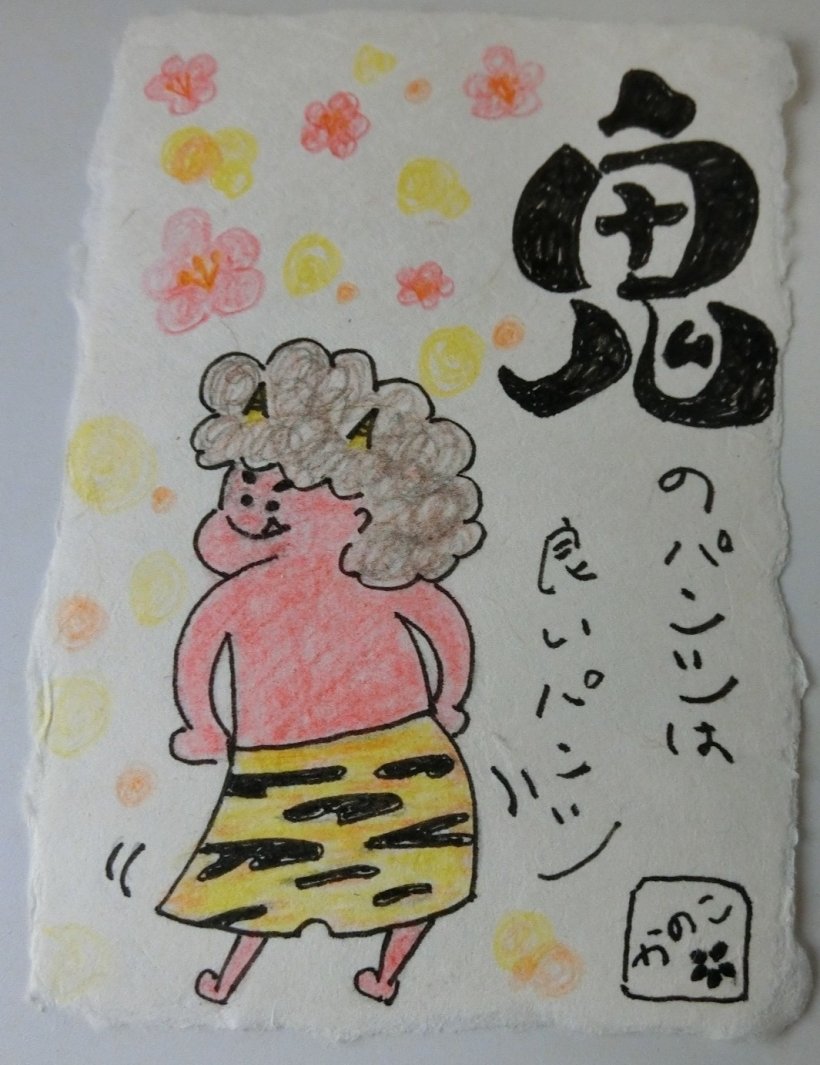 鬼
のパンツは
良いパンツ
かのこ